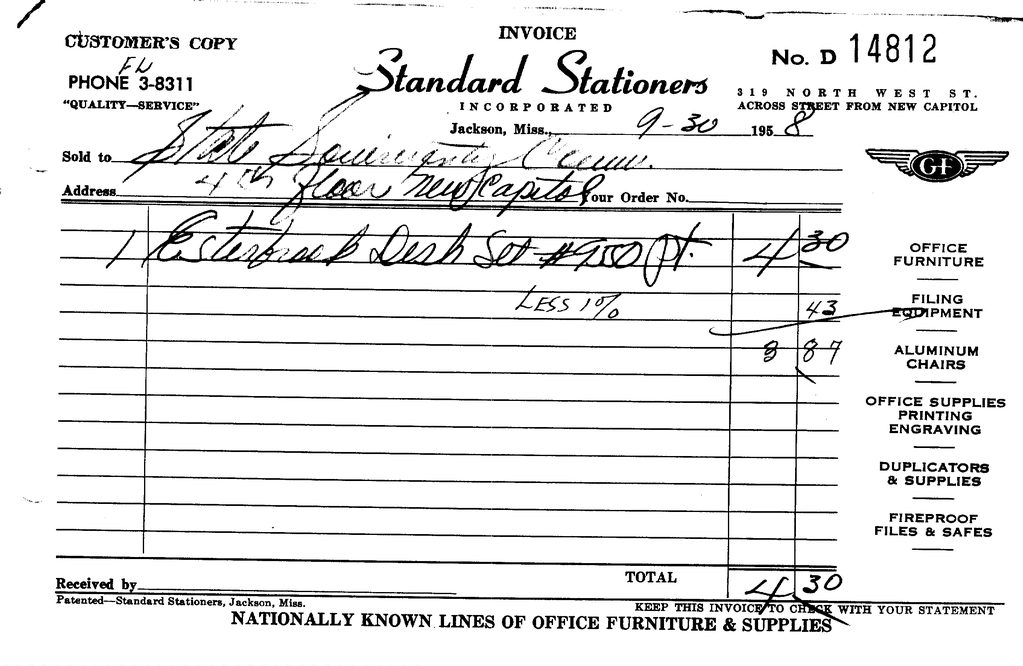 INVOICE
CUSTOMER'S COPY
FL
PHONE 3-8311
"QUALITY—SERVICE"
Standard Stationers
INCORPORATED
No. D 14812
319 NORTH WEST ST.
ACROSS STREET FROM NEW CAPITOL
Jackson, Miss., 9-30 1958
Sold to State Sovereignty Comm.
Address 4th floor New Capitol Your Order No.
GF
1 Esterbrook Desk Set #9550 Pt. 4 30
LESS 10% 43
3 87
OFFICE
FURNITURE
FILING
EQUIPMENT
ALUMINUM
CHAIRS
OFFICE SUPPLIES
PRINTING
ENGRAVING
DUPLICATORS
& SUPPLIES
FIREPROOF
FILES & SAFES
Received by TOTAL 4 30
Patented—Standard Stationers, Jackson, Miss. KEEP THIS INVOICE TO CHECK WITH YOUR STATEMENT
NATIONALLY KNOWN LINES OF OFFICE FURNITURE & SUPPLIES